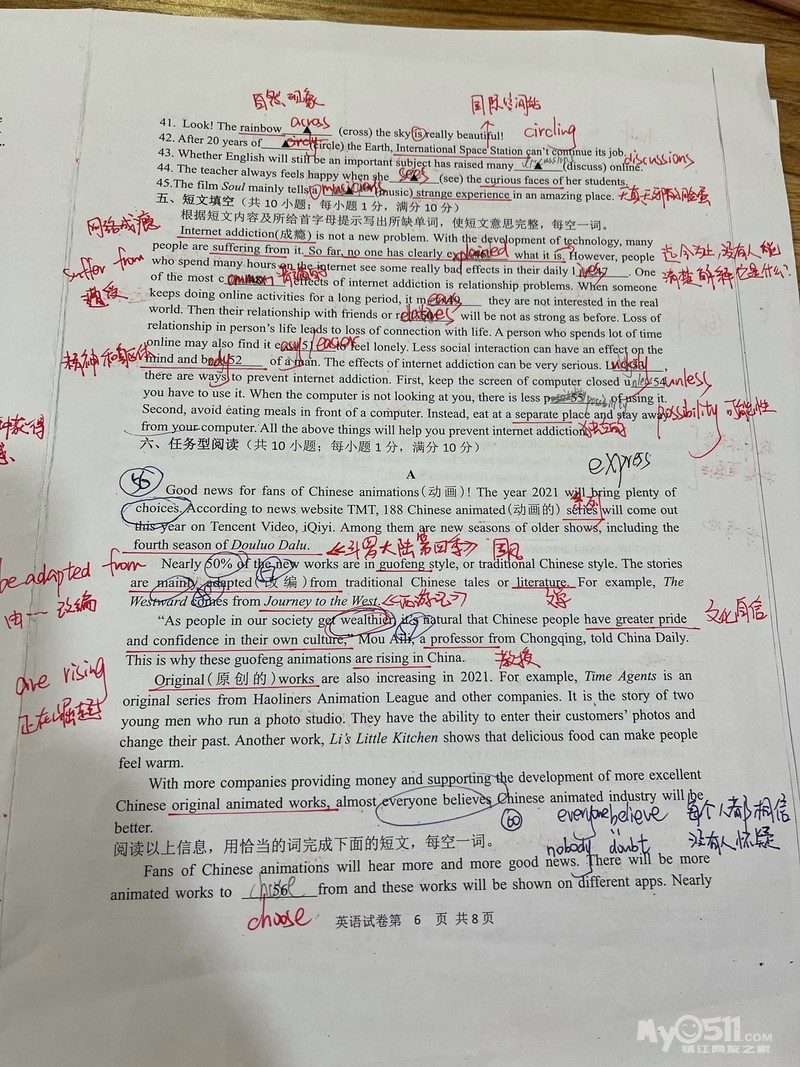 自然现象 国际空间站
41. Look! The rainbow across (cross) the sky is really beautiful!
42. After 20 years of circling (circle) the Earth, International Space Station can't continue its job.
43. Whether English will still be an important subject has raised many discussions (discuss) online. discussions
44. The teacher always feels happy when she sees (see) the curious faces of her students.
45.The film Soul mainly tells a musician's (music) strange experience in an amazing place.
五、短文填空(共 10 小题;每小题 1 分,满分 10 分)
根据短文内容及所给首字母提示写出所缺单词,使短文意思完整,每空一词。
网络成瘾
Internet addiction(成瘾) is not a new problem. With the development of technology, many
people are suffering from it. So far, no one has clearly explained what it is. However, people
迄今为止,没有人能清楚解释它是什么?
suffer from
遭受
who spend many hours on the internet see some really bad effects in their daily lives. One
of the most common effects of internet addiction is relationship problems. When someone
keeps doing online activities for a long period, it means they are not interested in the real
world. Then their relationship with friends or relatives will be not as strong as before. Loss of
relationship in person's life leads to loss of connection with life. A person who spends lot of time
online may also find it easy 51 easier to feel lonely. Less social interaction can have an effect on the
精神和躯体
mind and body 52 of a man. The effects of internet addiction can be very serious. Luckily,
there are ways to prevent internet addiction. First, keep the screen of computer closed unless 54 unless
you have to use it. When the computer is not looking at you, there is less possibility 55 of using it.
possibility 可能性
Second, avoid eating meals in front of a computer. Instead, eat at a separate place and stay away
from your computer. All the above things will help you prevent internet addiction.
六、任务型阅读(共 10 小题;每小题 1 分,满分 10 分)
express
A
56
Good news for fans of Chinese animations(动画)! The year 2021 will bring plenty of
系列
choices. According to news website TMT, 188 Chinese animated(动画的) series will come out
this year on Tencent Video, iQiyi. Among them are new seasons of older shows, including the
fourth season of Douluo Dalu. 《斗罗大陆第四季》 国风
be adapted from
由…改编
Nearly 50% of the new works are in guofeng style, or traditional Chinese style. The stories
are mainly adapted(改编)from traditional Chinese tales or literature. For example, The
Westward comes from Journey to the West. 《西游记》 文学
"As people in our society get wealthier, it's natural that Chinese people have greater pride 文化自信
and confidence in their own culture," Mou Aili, a professor from Chongqing, told China Daily.
This is why these guofeng animations are rising in China. 教授
are rising
正在崛起
Original(原创的)works are also increasing in 2021. For example, Time Agents is an
original series from Haoliners Animation League and other companies. It is the story of two
young men who run a photo studio. They have the ability to enter their customers' photos and
change their past. Another work, Li's Little Kitchen shows that delicious food can make people
feel warm.
With more companies providing money and supporting the development of more excellent
Chinese original animated works, almost everyone believes Chinese animated industry will be
better.
60 everyone believe 每个人都相信
nobody doubt 没有人怀疑
阅读以上信息,用恰当的词完成下面的短文,每空一词。
Fans of Chinese animations will hear more and more good news. There will be more
animated works to choose 56 from and these works will be shown on different apps. Nearly
choose
英语试卷第 6 页 共 8 页
My0511.COM
镇江网友之家